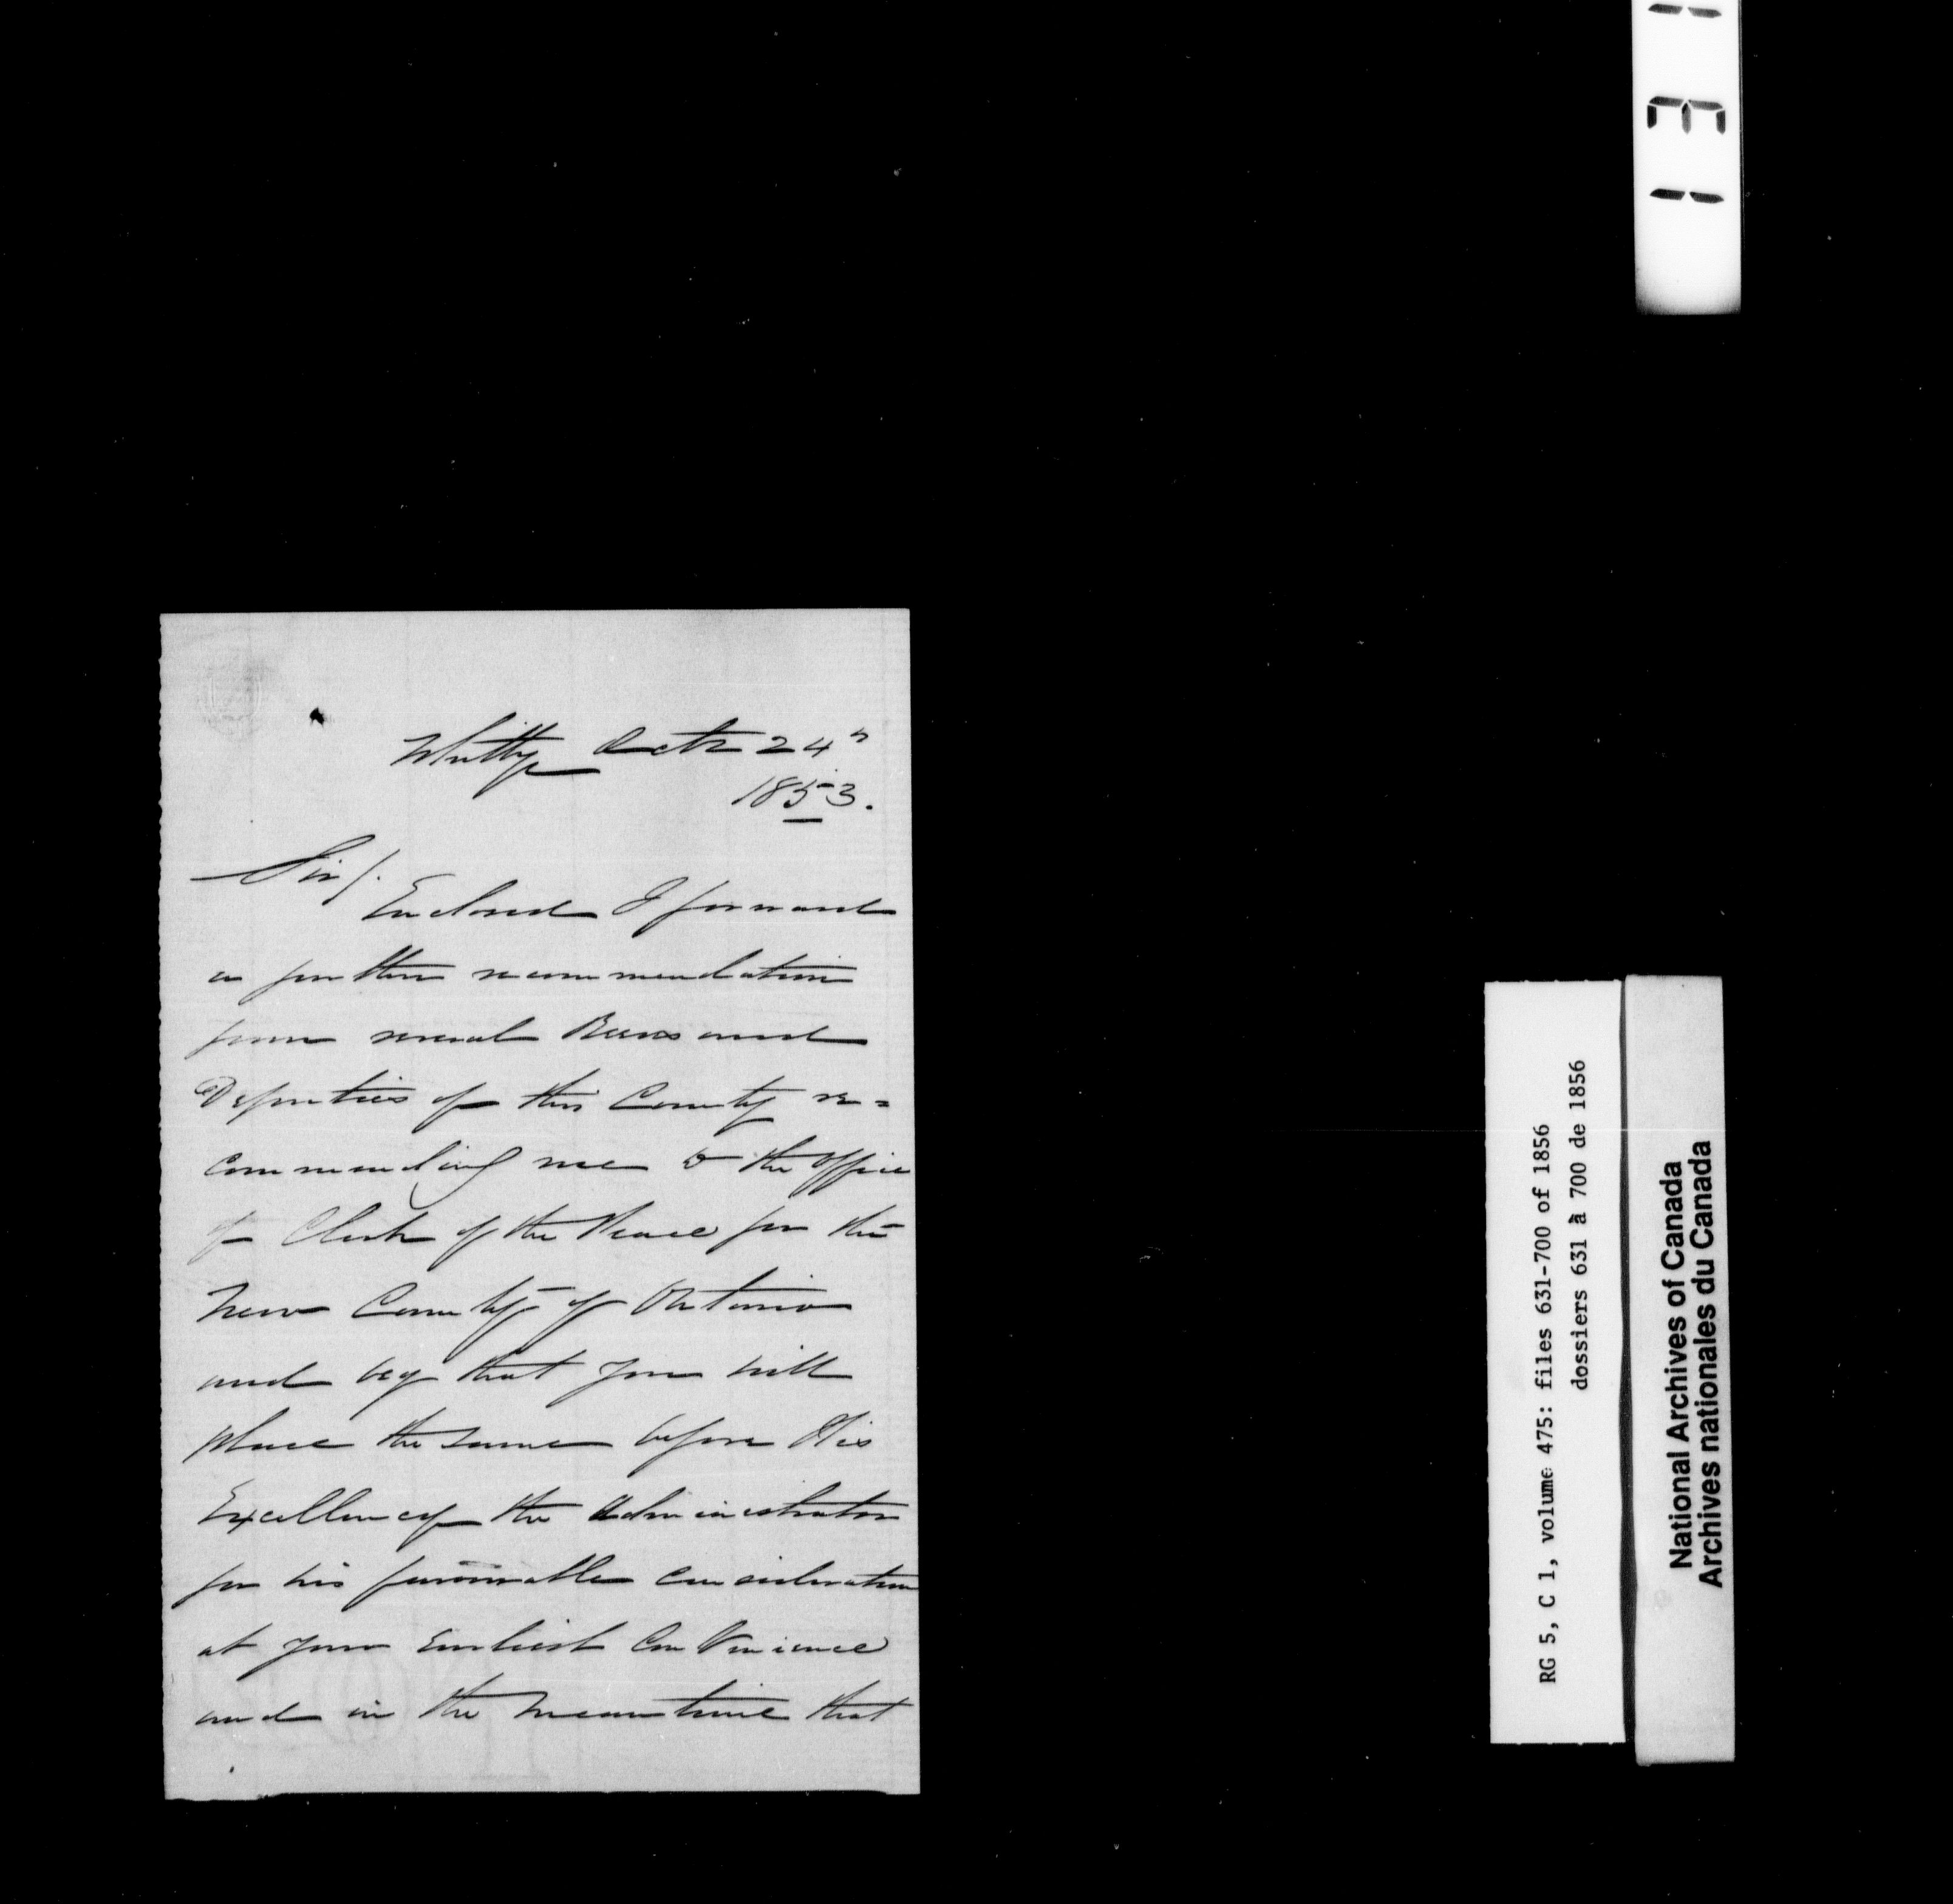 Whitby Octr 24th
1853.
Sir/.
Enclosed I forward
a further recommendation
from several Reeves and
Deputies of this County re=
commending me to the Office
of Clerk of the Peace for the
New County of Ontario
and beg that you will
place the same before His
Excellency the Administrator
for his favourable consideration
at your Earliest Convenience
and in the meantime that
RG 5, C 1, volume 475: files 631-700 of 1856
dossiers 631 à 700 de 1856
National Archives of Canada
Archives nationales du Canada